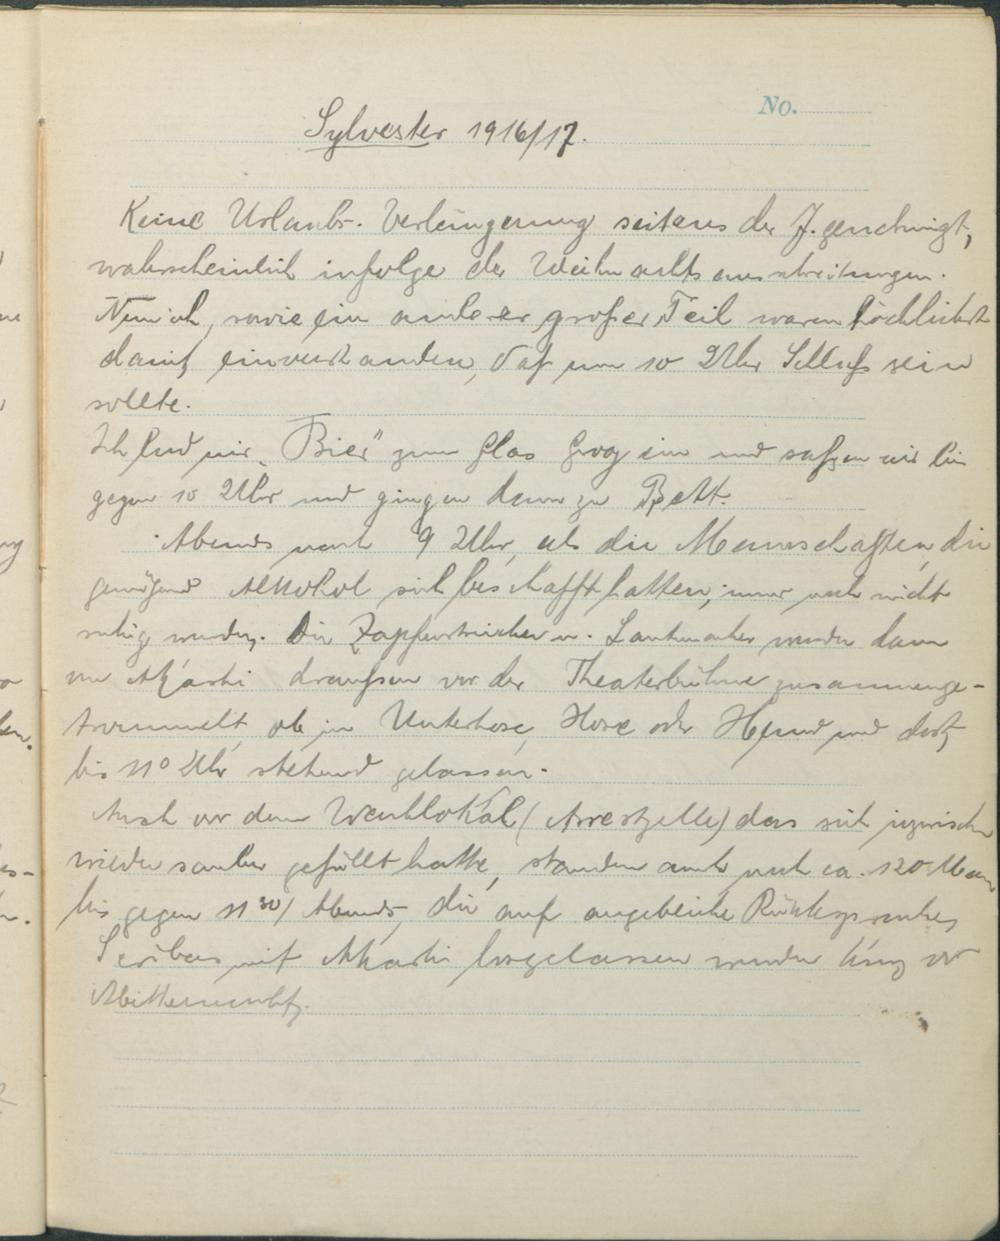 No.
Sylvester 1916/17.
Keine Urlaubs-Verlängerung seitens der J. genehmigt,
wahrscheinlich infolge der Weihnachtsausschreitungen.
Nun ich, sowie ein anderer großer Teil waren höchlichst
damit einverstanden, daß um 10 Uhr Schluß sein
sollte.
Ich lud mir „Bier" zum Glas Grog ein und saßen wir bis
gegen 10 Uhr und gingen dann zu Bett.
Abends nach 9 Uhr, als die Mannschaften, die
genügend Alkohol sich beschafft hatten, immer noch nicht
ruhig wurden. Die Zapfenstreicher u. Lautmacher wurden dann
von Akashi draussen vor der Theaterbühne zusammenge-
trommelt, ob in Unterhose, Hose oder Hemd und dort
bis 11° Uhr stehend gelassen.
Auch vor dem Wachlokal (Arrestzelle) das sich inzwischen
wieder sauber gefüllt hatte, standen auch noch ca. 120 Mann
bis gegen 11³⁰/ Abends, die auf angebliche Rücksprache
mit Akashi losgelassen wurden kurz vor
Mitternacht.